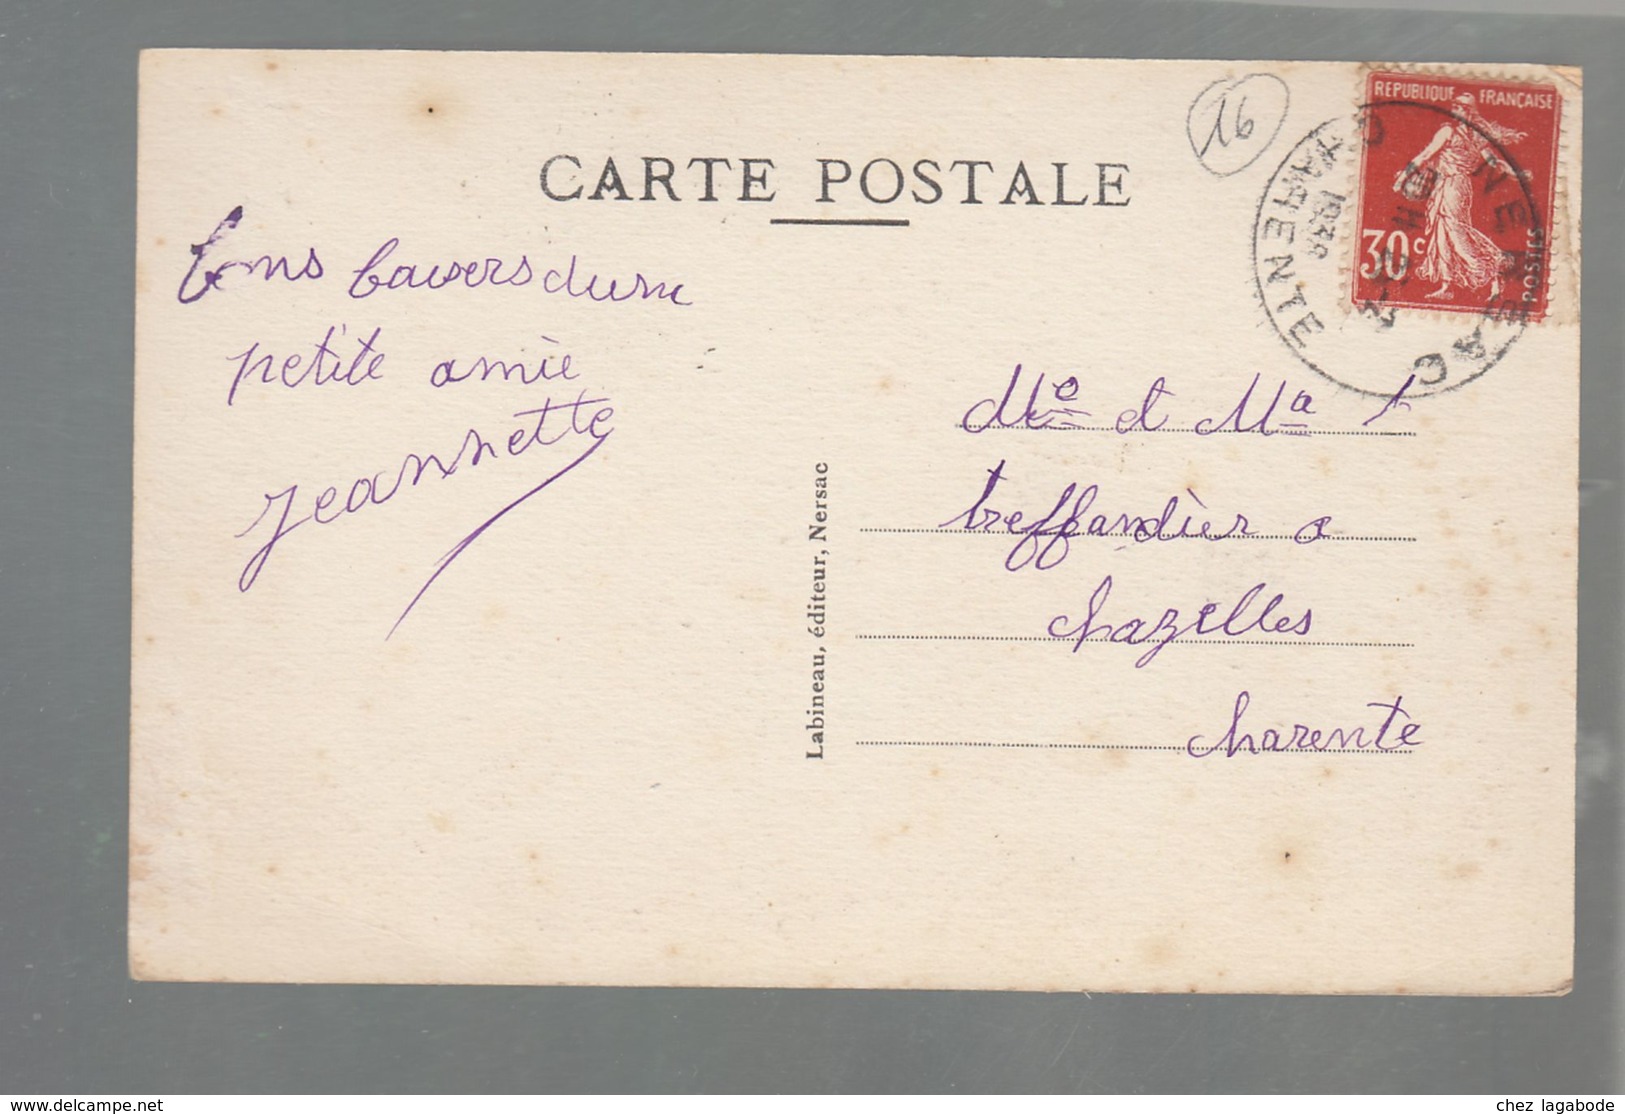 16
RÉPUBLIQUE FRANÇAISE
30c
POSTES
NERSAC
CHARENTE
CARTE POSTALE
bons baisers dune
petite amie
Jeannette
Me et Ma
treffandier a
chazelles
charente
Labineau, éditeur, Nersac
www.delcampe.net
chez lagabode